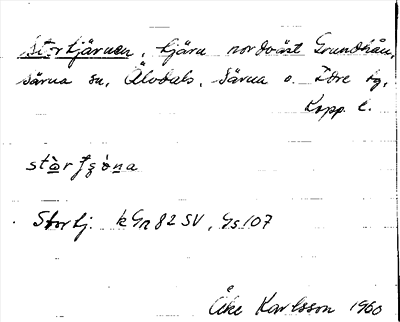 Stortjärnen, tjärn nordväst Grundhån,
Särna sn, Älvdals, Särna o. Idre tg,
Kopp. l.
Stortj. kGn 82 SV, Gs 107
Åke Karlsson 1960